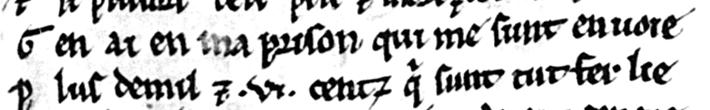 G en ai en ma prison qui me sunt en uoie
p lus demil ⁊ .vi. cenz q̃ sunt tut fer lie